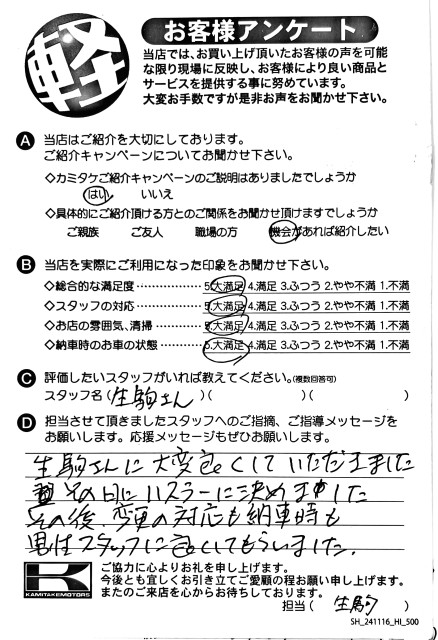 軽
お客様アンケート
当店では、お買い上げ頂いたお客様の声を可能
な限り現場に反映し、お客様により良い商品と
サービスを提供する事に努めています。
大変お手数ですが是非お声をお聞かせ下さい。
A 当店はご紹介を大切にしております。
ご紹介キャンペーンについてお聞かせ下さい。
◇カミタケご紹介キャンペーンのご説明はありましたでしょうか
はい いいえ
◇具体的にご紹介頂ける方とのご関係をお聞かせ頂けますでしょうか
ご親族 ご友人 職場の方 機会があれば紹介したい
B 当店を実際にご利用になった印象をお聞かせ下さい。
◇総合的な満足度 5.大満足 4.満足 3.ふつう 2.やや不満 1.不満
◇スタッフの対応 5.大満足 4.満足 3.ふつう 2.やや不満 1.不満
◇お店の雰囲気、清掃 5.大満足 4.満足 3.ふつう 2.やや不満 1.不満
◇納車時のお車の状態 5.大満足 4.満足 3.ふつう 2.やや不満 1.不満
C 評価したいスタッフがいれば教えてください。(複数回答可)
スタッフ名(生駒さん)( )( )
D 担当させて頂きましたスタッフへのご指摘、ご指導メッセージを
お願いします。応援メッセージもぜひお願いします。
生駒さんに大変良くしていただきました
その日にハスラーに決めました
その後、変更の対応も納車時も
男性スタッフに良くしてもらいました。
K
KAMITAKEMOTORS
ご協力に心よりお礼を申し上げます。
今後とも宜しくお引き立てご愛顧の程お願い申し上げます。
またのご来店を心からお待ちしております。
担当(生駒)
SH_241116_HI_500